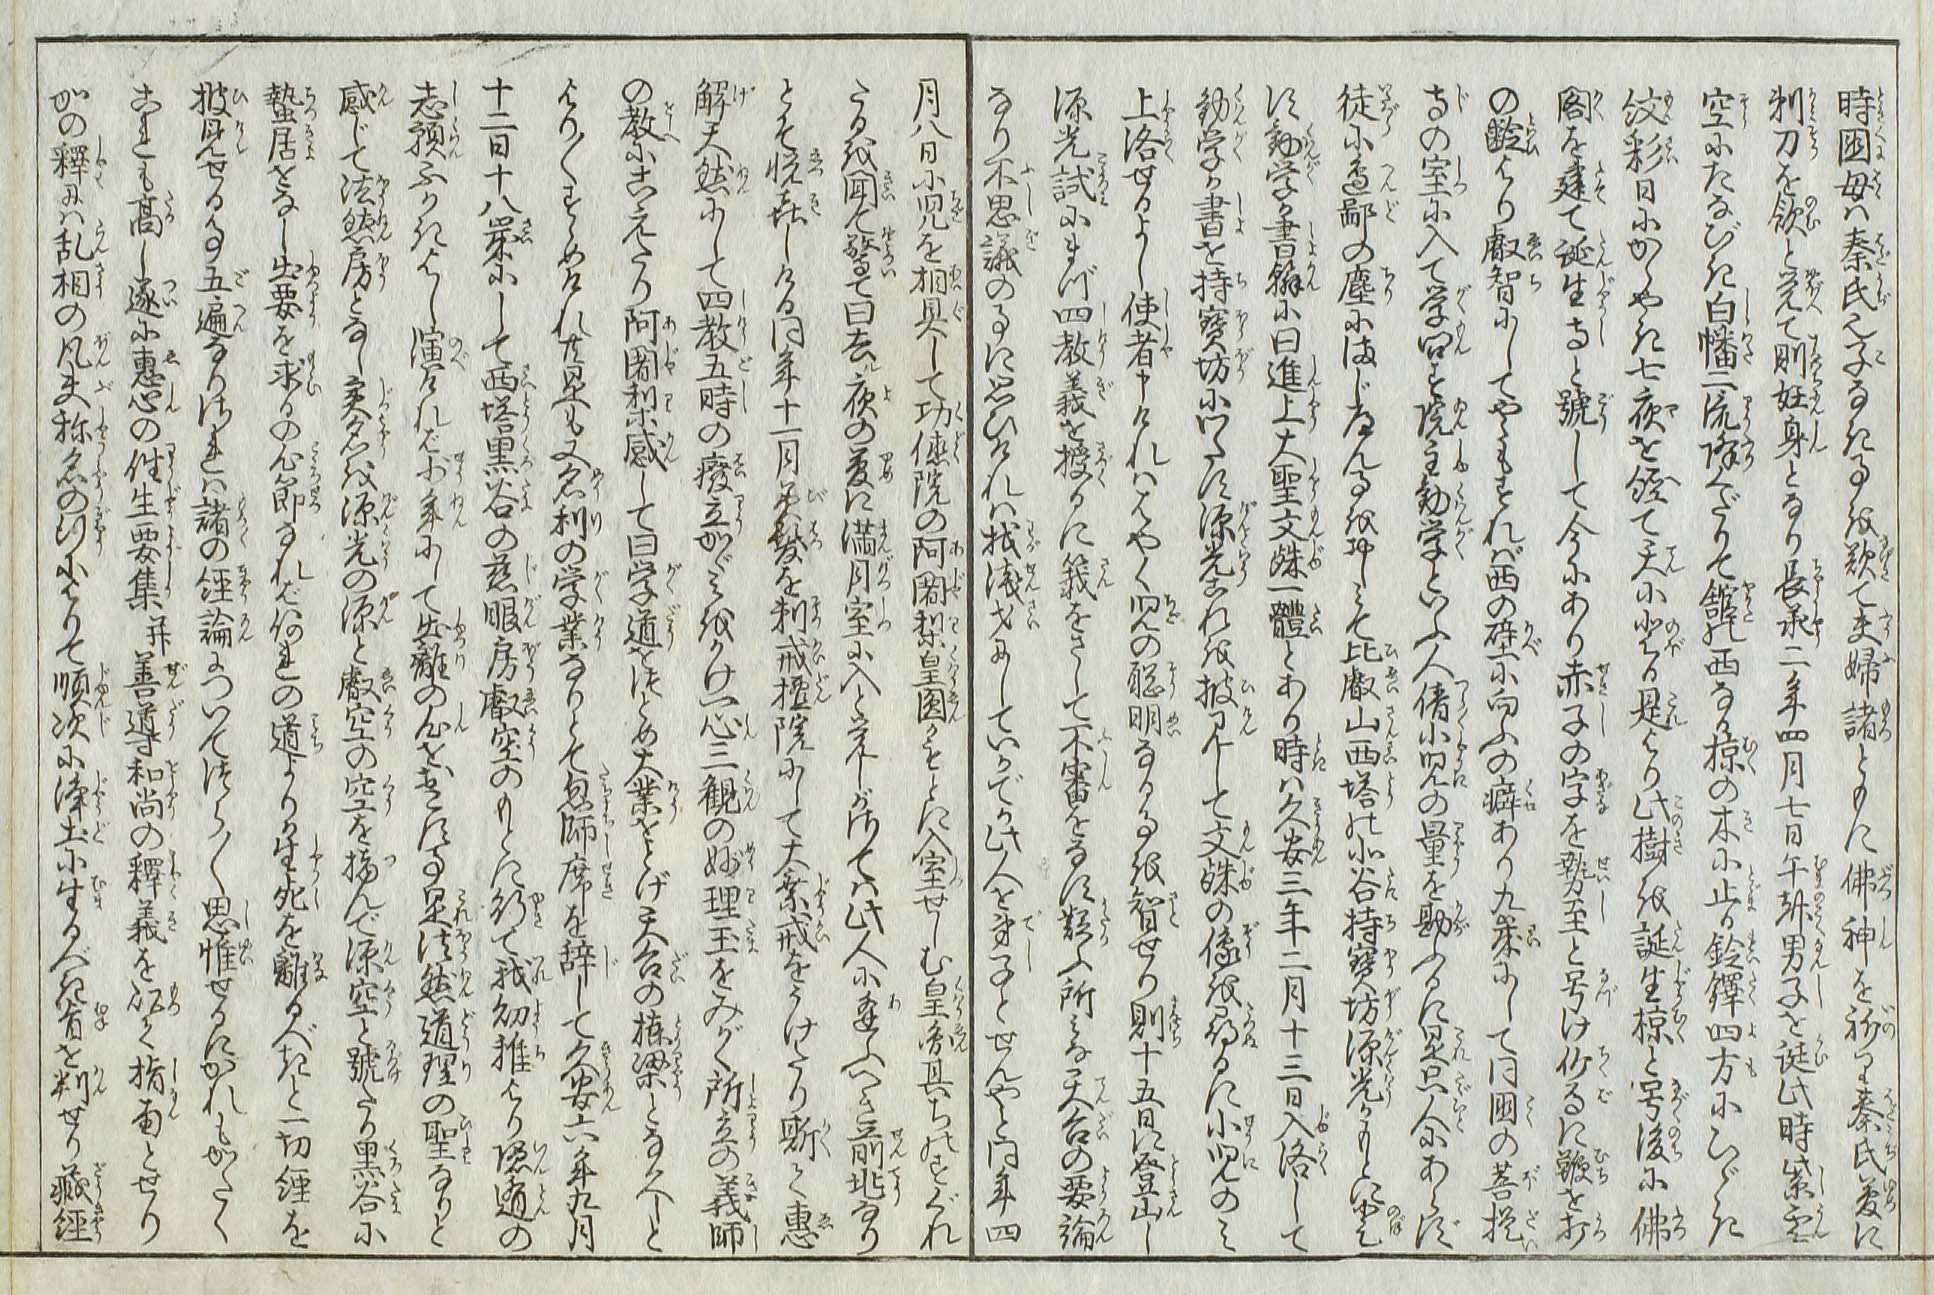 時国母は秦氏也子なきを歎て夫婦諸ともに佛神を祈る秦氏夢に
剃刀を飲と覚て則妊身となり長承二年四月七日午剋男子を誕此時紫雲
空にたなびき白幡二流降くだりて館の西なる椋の木に止る鈴鐸四方にひゞき
紋彩日にかゝやき七夜を経て天に登る是より此樹を誕生椋と号後に佛
閣を建て誕生寺と號して今にあり赤子の字を勢至と号け竹馬に鞭を打
の齢より叡智にしてやゝもすれば西の壁に向ふの癖あり九歳にして同国の菩提
寺の室に入て学問を院主勧学といふ人倩小児の量を勘ふるに是只人にあらず
徒に邉鄙の塵にまじはらんを惜しみて比叡山西塔の北谷持寳坊源光がもとに登す
に勧学が書翰に曰進上大聖文殊一體とあり時は久安三年二月十三日入洛して
勧学が書を持寳坊に以たす源光これを披見して文殊の像を尋るに小児のミ
上洛せるよし使者申けれはハやく児の聡明なる事を智せり則十五日に登山し
源光試にまづ四教義を授るに籤をさして不審をなす疑ふ所みな天台の要論
なり不思議の事に思ひけれは拙浅才にしていかでか此人を弟子とせんやと同年四
月八日小児を相具して功徳院の阿闍梨皇圓がもとに入室せしむ皇圓其ちのすぐれ
たるを聞て驚て曰去ル夜の夢に満月室に入と覚しが偖は此人に逢ふべき前兆なり
とて悦喜しける同年十一月鬢髪を剃戒壇院にして大乗戒をうけたり漸く惠
解天然にして四教五時の廢立かゞミをかけ一心三観の妙理玉をみがく所立の義師
の教にこえたり阿闍梨感して曰学道をつとめ大業をとげ天台の棟梁となり給へと
より〳〵すゝめけれ共是も又名利の学業なりとて忽師席を辞して久安六年九月
十二日十八歳にして西塔黒谷の慈眼房叡空のもとに行て我幼稚より隠遁の
志願ふかきよし演けれバ少年にして出離の心をおこす事是法然道理の聖なりと
感じて法然房となし実名を源光の源と叡空の空を摘んで源空と號たり黒谷に
蟄居をなし出要を求るの心節なれバ何れの道よりか生死を離るべきと一切経を
披見せる事五遍なりけれは諸の経論について渉らく思惟せるにかれもかたく
これも高し遂に惠心の往生要集并善導和尚の釋義を以て指南とせり
かの釋には乱相の凡夫称名の行によりて順次に浄土に生るべき旨を判せり蔵経